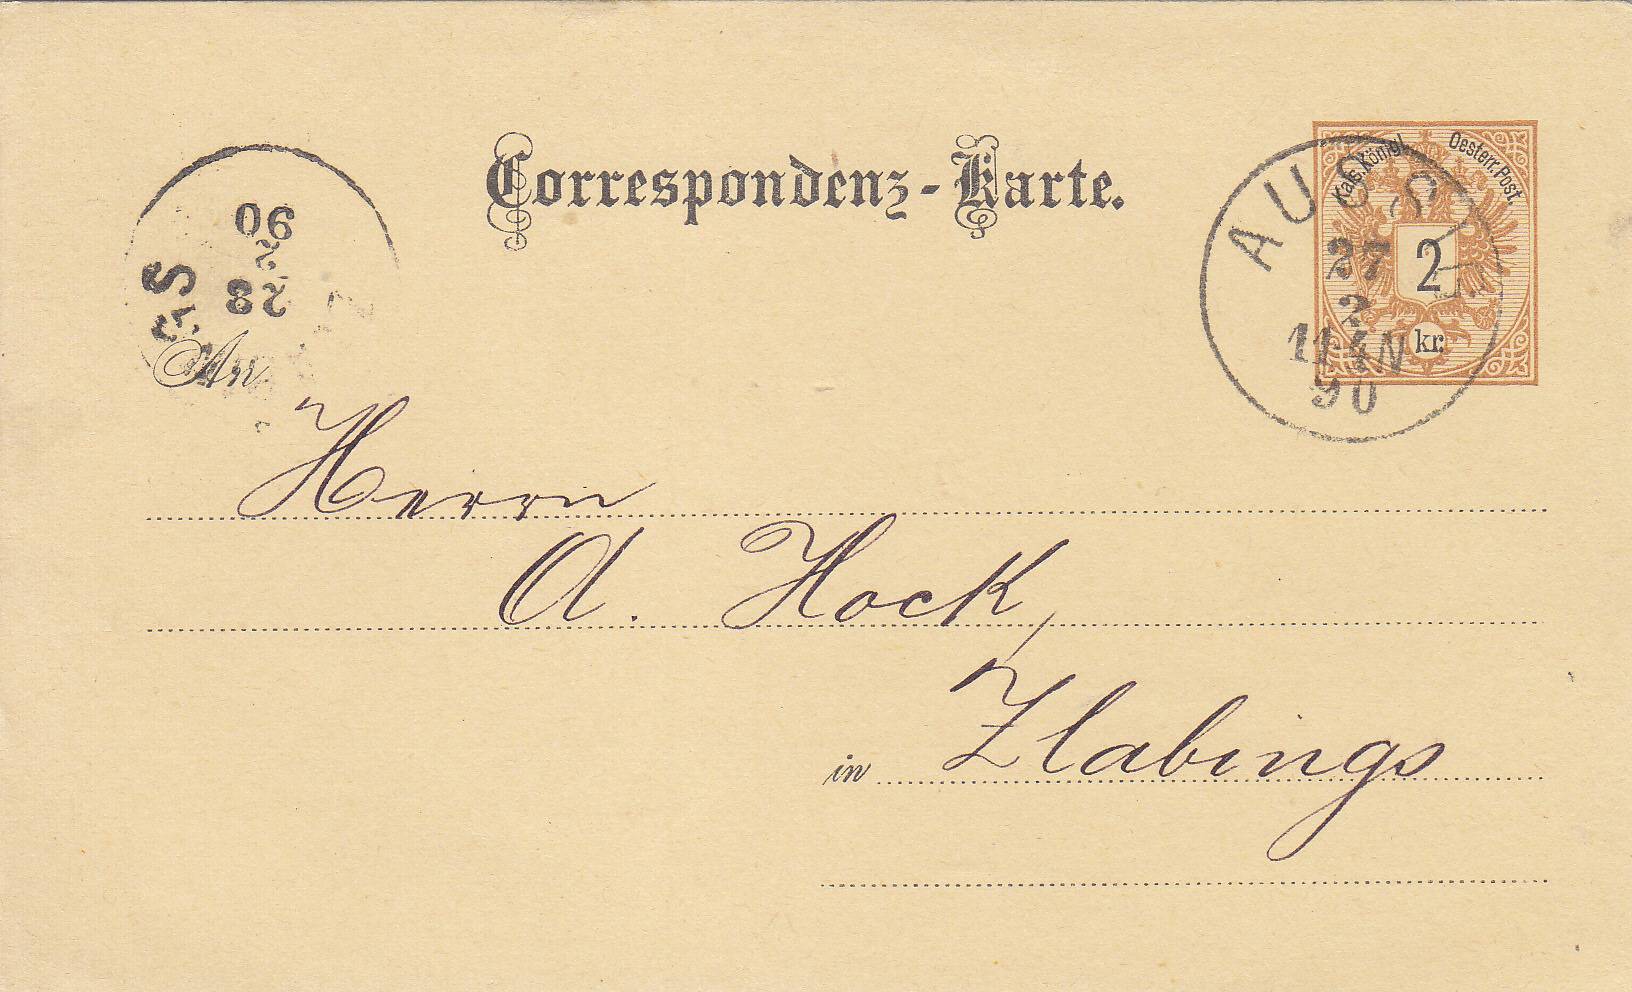 Correspondenz-Karte.
Kais. Königl. Oesterr. Post.
2
kr.
AUSSIG
27
2
11-4N
90
90
2
28
GS
An
Herrn
A. Hock,
in Zlabings